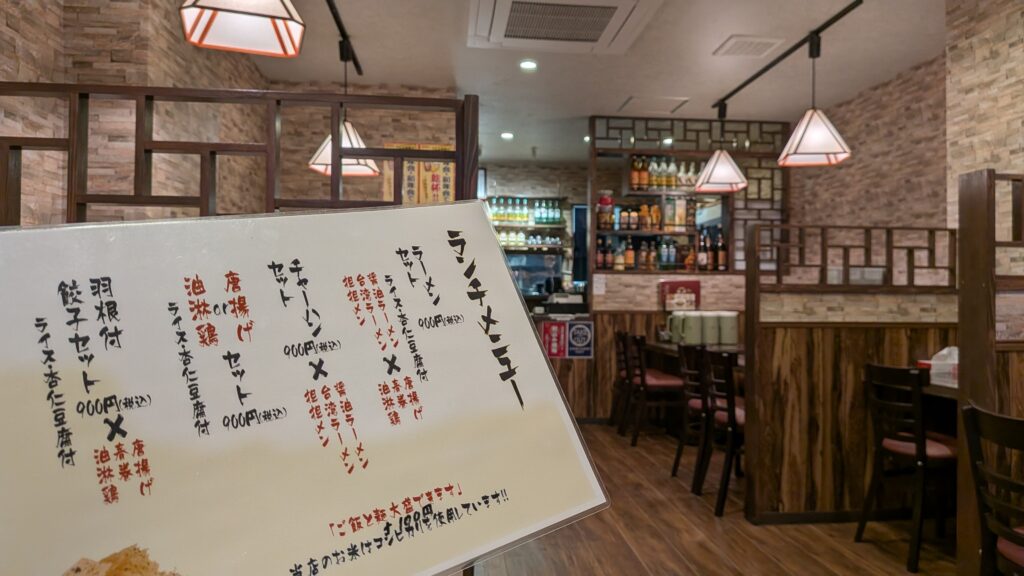 ランチメニュー
ラーメン
セット
900円(税込)
ライス・杏仁豆腐付
醤油ラーメン
台湾ラーメン
担担メン
×
唐揚げ
春巻
油淋鶏
チャーハン
セット
900円(税込)
×
醤油ラーメン
台湾ラーメン
担担メン
唐揚げ
or
油淋鶏
セット
900円(税込)
ライス・杏仁豆腐付
羽根付
餃子セット
900円(税込)
ライス・杏仁豆腐付
×
唐揚げ
春巻
油淋鶏
「ご飯と麺大盛できます」
当店のお米はコシヒカリを使用しています!!